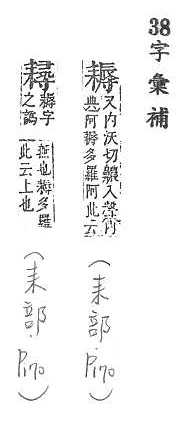 38字彙補
耨 又內沃切 入聲內
典阿耨多羅阿此云
(耒部·P170)
耨字
之譌
無也耨多羅
此云上也
(耒部·P170)